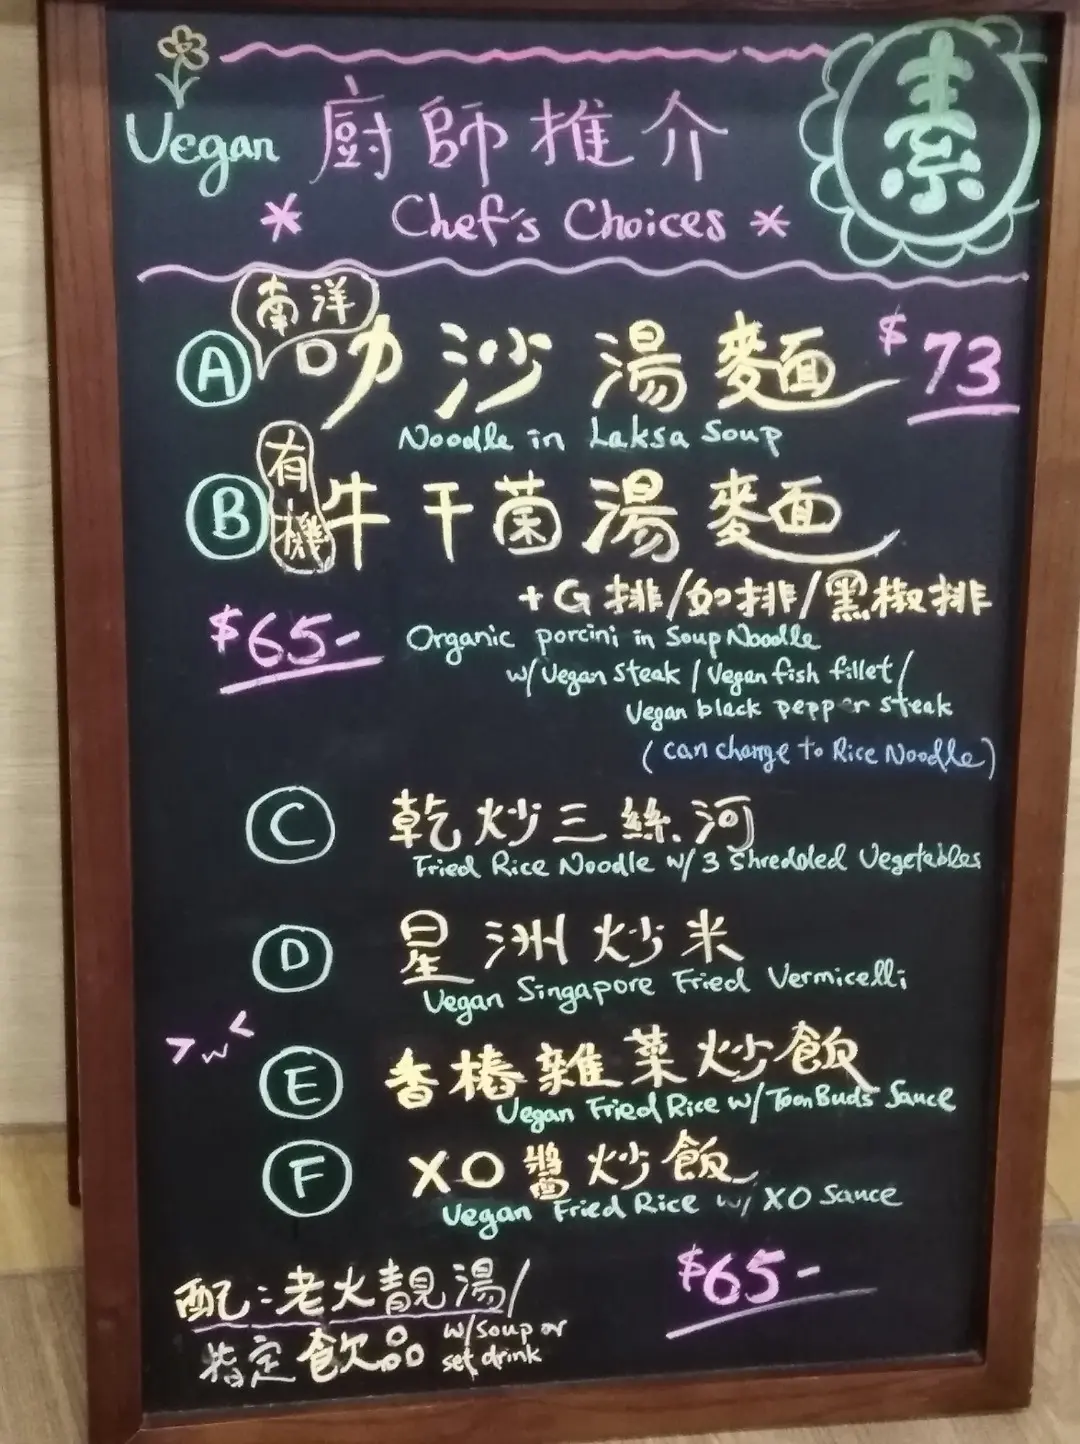 Vegan 廚師推介 素
* Chef's Choices *
南洋
A 叻沙湯麵 $73
Noodle in Laksa Soup
有機
B 牛干菌湯麵
+G排/如排/黑椒排
$65-
Organic porcini in Soup Noodle
w/ Vegan steak / Vegan fish fillet /
Vegan black pepper steak
(can change to Rice Noodle)
C 乾炒三絲河
Fried Rice Noodle w/ 3 Shredded Vegetables
D 星洲炒米
Vegan Singapore Fried Vermicelli
>w<
E 香樁雜菜炒飯
Vegan Fried Rice w/ Toon Buds Sauce
F XO醬炒飯
Vegan Fried Rice w/ XO Sauce
$65-
配:老火靚湯/
指定飲品 w/soup or
set drink